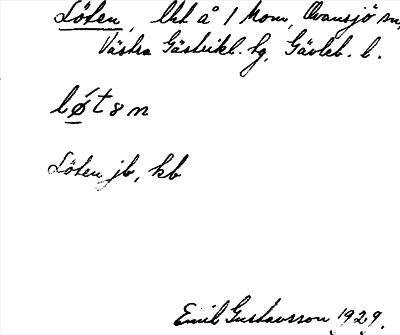 Löten, lht å 1 hem, Ovansjö sn,
Västra Gästrikl. tg, Gävleb. l.
lǿt8n
Löten jb, kb
Emil Gustavsson 1929.